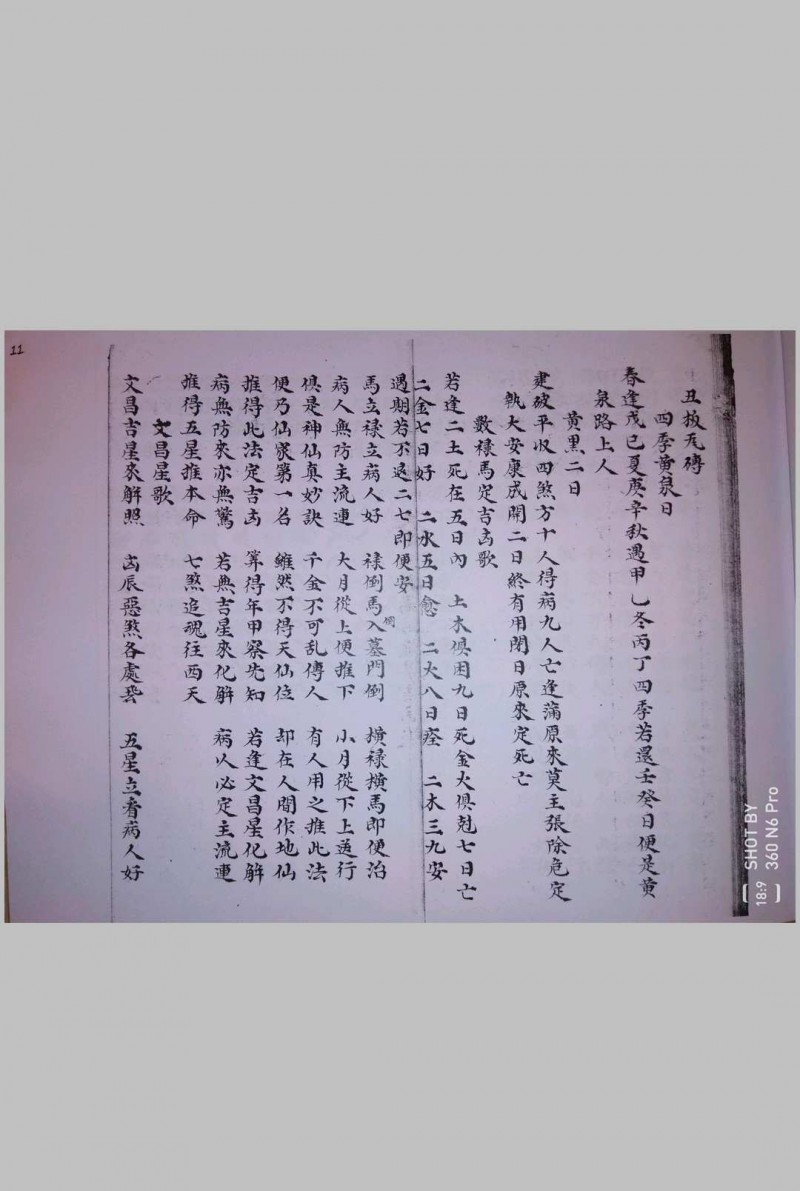 丑扳瓦磚
四季黄泉日
春逢戊已夏庚辛秋遇甲乚冬丙丁四季若還壬癸日便是黄
泉路上人
黄黑二日
建破平收四煞方十人得病九人亡逢蒲原來莫主張除危定
執大安康成開二日終有用閉日原來定死亡
數禄馬定吉凶歌
若逢二土死在五日內 土木俱困九日死金火俱尅七日亡
二金七日好 二水五日愈 二火八日痊 二木三九安
遇期若不退二七即便安
馬立禄立病人好 禄倒馬入墓門倒 横禄横馬即便治
病人無防主流連 大月從上便推下 小月從下上逆行
俱是神仙真妙訣 千金不可乱傳人 有人用之推此法
便乃仙家第一名 雖然不得天仙位 却在人間作地仙
推得此法定吉凶 筭得年甲察先知 若逢文昌星化解
病無防來亦無驚 若無吉星來化解 病人必定主流連
推得五星推本命 七煞追魂往西天
文昌星歌
文昌吉星來解照 凶辰惡煞各處 五星立着病人好
11
SHOT BY
360 N6 Pro
18:9